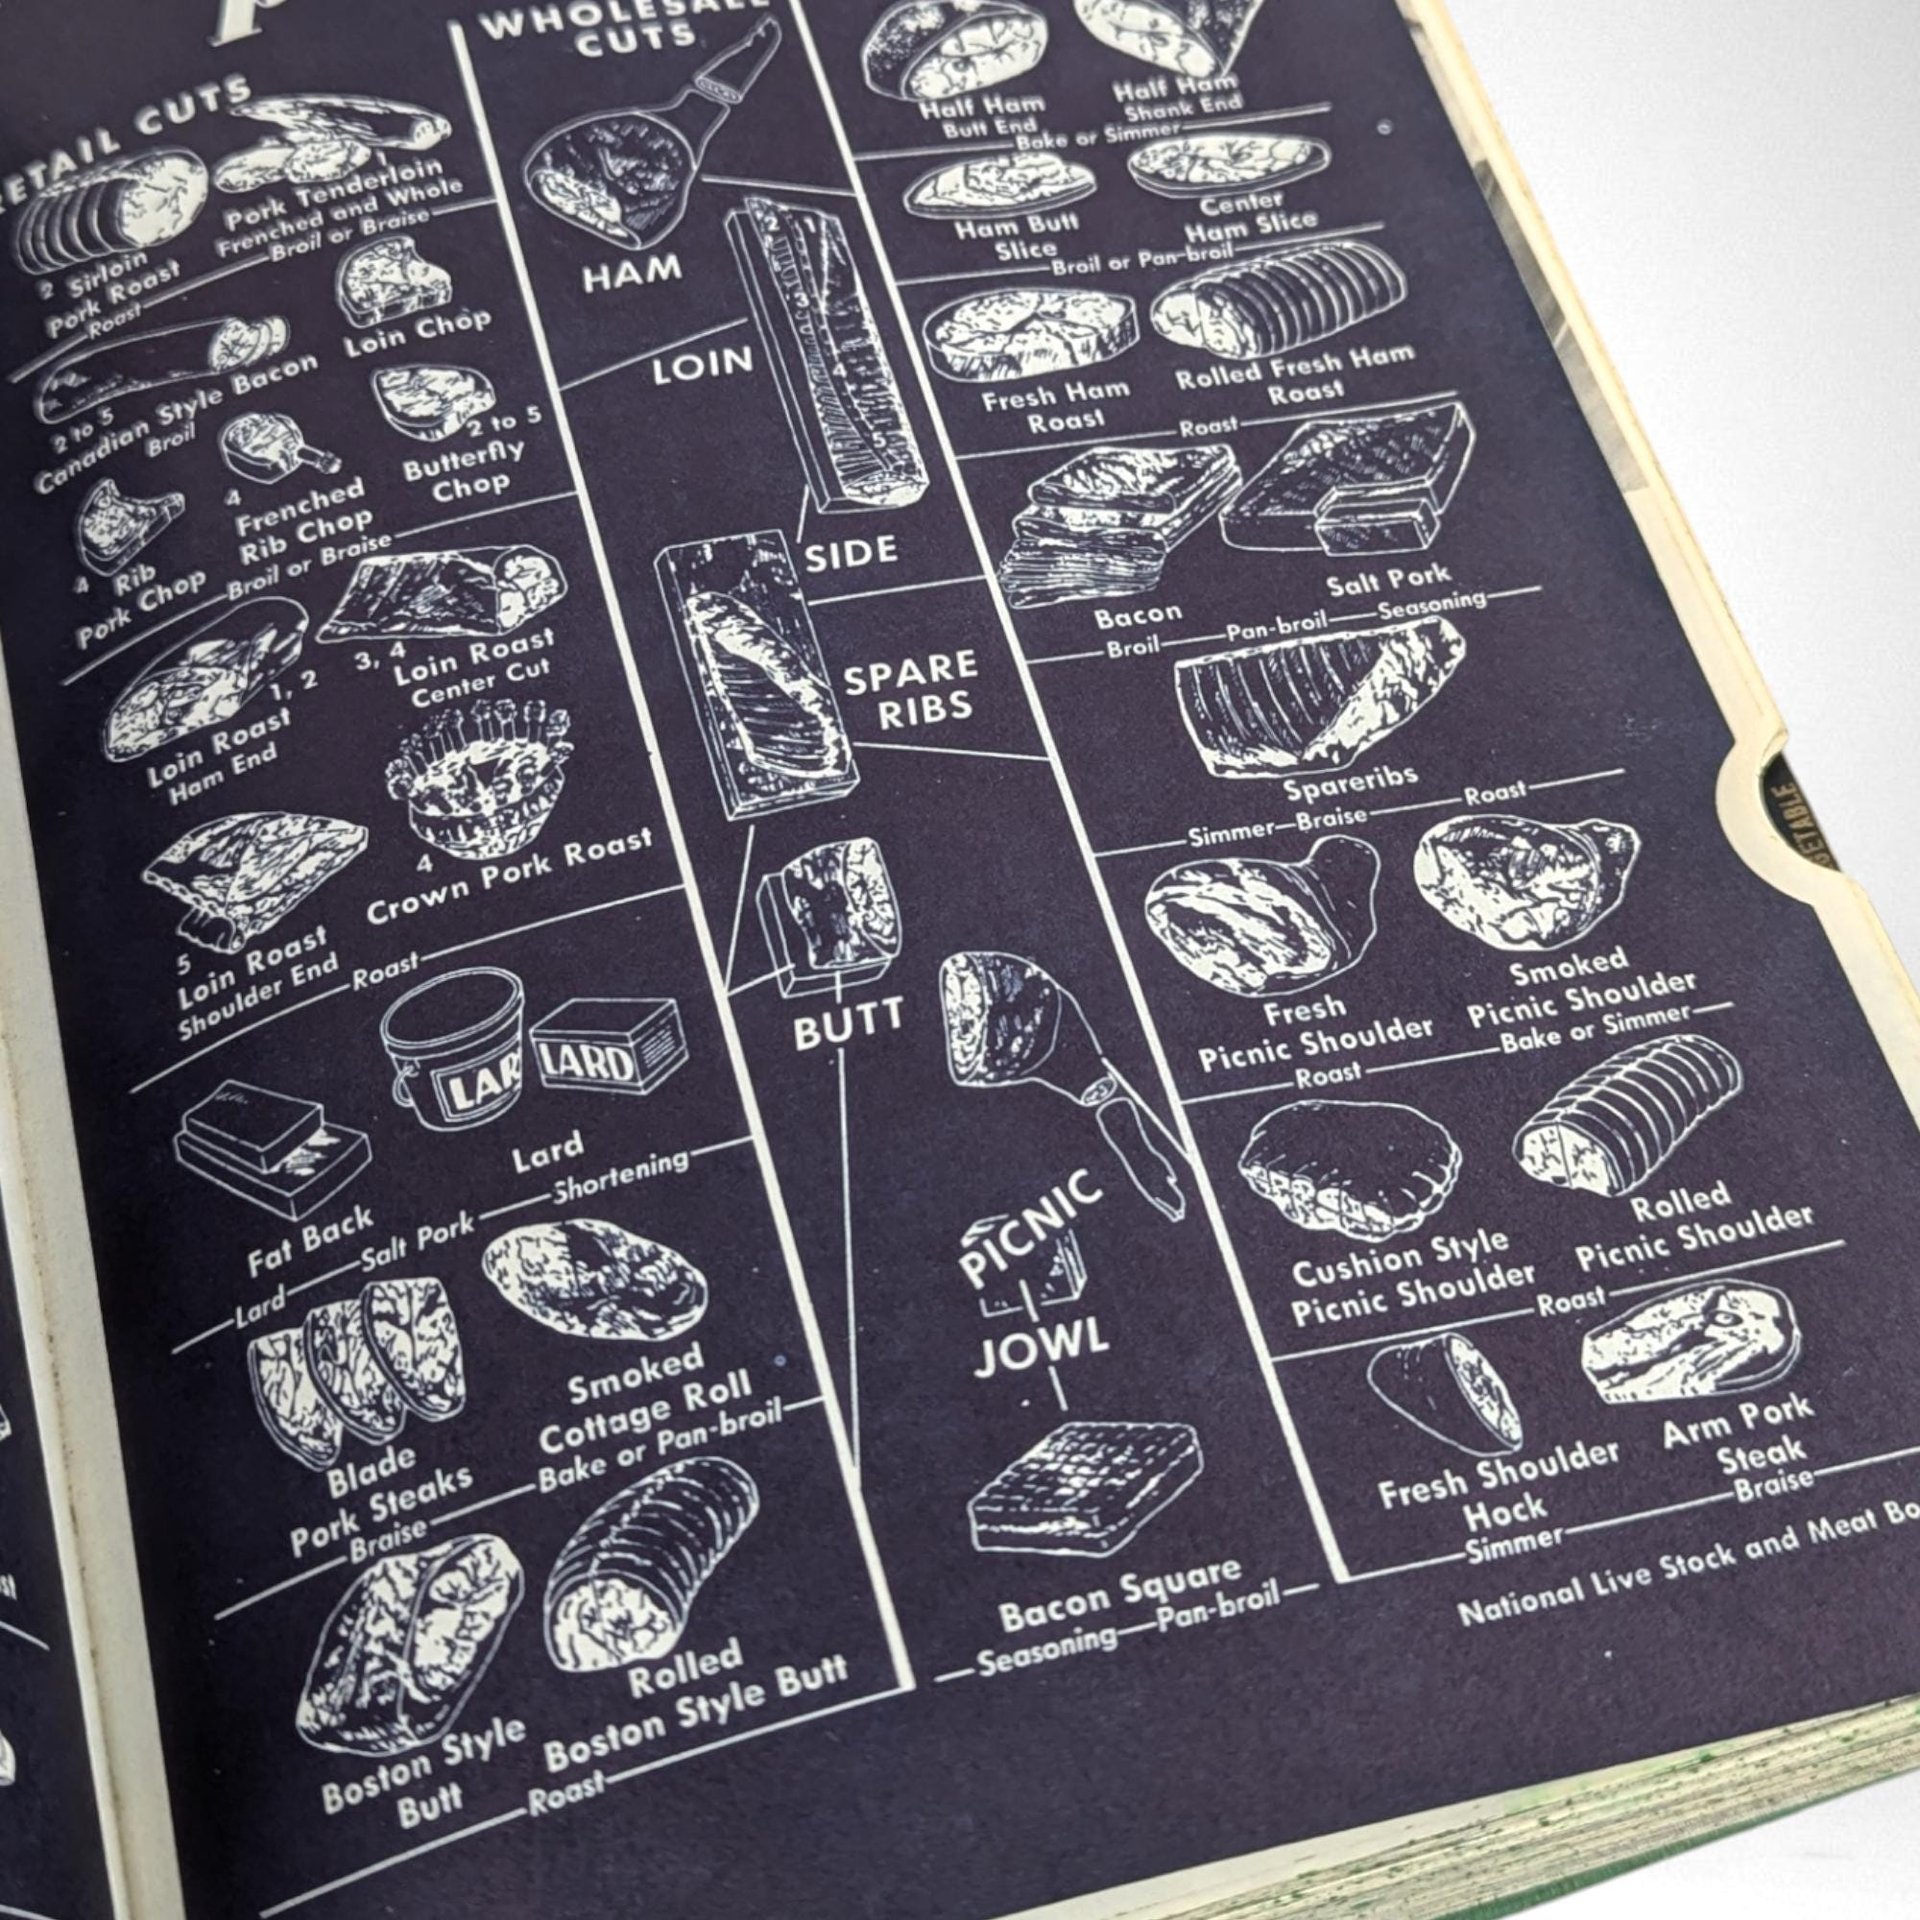 RETAIL CUTS
2 Sirloin
Pork Roast
Roast
1
Pork Tenderloin
Frenched and Whole
Broil or Braise
2 to 5
Canadian Style Bacon
Broil
Loin Chop
2 to 5
Butterfly
Chop
4
Frenched
Rib Chop
4 Rib
Pork Chop
Broil or Braise
1, 2
Loin Roast
Ham End
3, 4
Loin Roast
Center Cut
4
Crown Pork Roast
5
Loin Roast
Shoulder End
Roast
LARD
Lard
Fat Back
Lard
Salt Pork
Shortening
Blade
Pork Steaks
Braise
Smoked
Cottage Roll
Bake or Pan-broil
Boston Style
Butt
Rolled
Boston Style Butt
Roast
WHOLESALE
CUTS
HAM
LOIN
2
1
3
4
5
SIDE
SPARE
RIBS
BUTT
PICNIC
JOWL
Bacon Square
Seasoning
Pan-broil
Half Ham
Butt End
Half Ham
Shank End
Bake or Simmer
Ham Butt
Slice
Center
Ham Slice
Broil or Pan-broil
Fresh Ham
Roast
Rolled Fresh Ham
Roast
Roast
Bacon
Salt Pork
Broil
Pan-broil
Seasoning
Spareribs
Simmer
Braise
Roast
Fresh
Picnic Shoulder
Smoked
Picnic Shoulder
Roast
Bake or Simmer
Cushion Style
Picnic Shoulder
Rolled
Picnic Shoulder
Roast
Fresh Shoulder
Hock
Arm Pork
Steak
Simmer
Braise
National Live Stock and Meat Bo